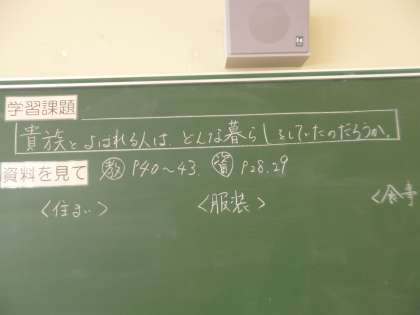 学習課題
貴族とよばれる人は、どんな暮らしをしていたのだろうか。
資料を見て 教 P40～43. 資 P28.29
<住まい> <服装> <食事